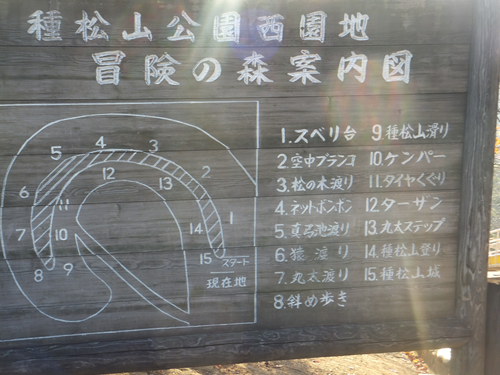 種松山公園西園地
冒険の森案内図
1.スベリ台
2 空中ブランコ
3.松の木渡り
4.ネットポンポン
5.真弓池渡り
6.猿渡り
7.丸太渡り
8.斜め歩き
9 種松山滑り
10.ケンパー
11.タイヤくぐり
12 ターザン
13.丸太ステップ
14.種松山登り
15.種松山城
5 4 3 2 1
6 7 8 9 10 11 12 13 14 15
スタート
現在地